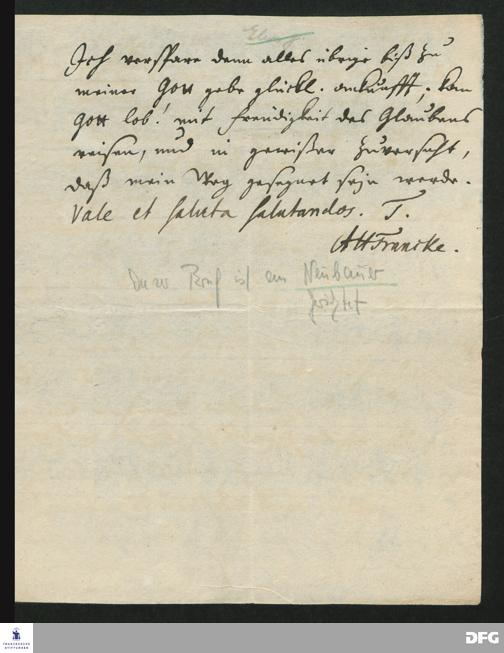 Ich verspare denn alles übrige biß zu
meiner Gott gebe glückl. ankunfft; kan
Gott lob! mit freudigkeit des Glaubens
reisen, und in gewißer zuversicht,
daß mein Weg gesegnet seyn werde.
Vale et saluta salutandos. T.
AHFrancke.
Dieser Brief ist an Neubauer
gerichtet
FRANCKESCHE
STIFTUNGEN
DFG